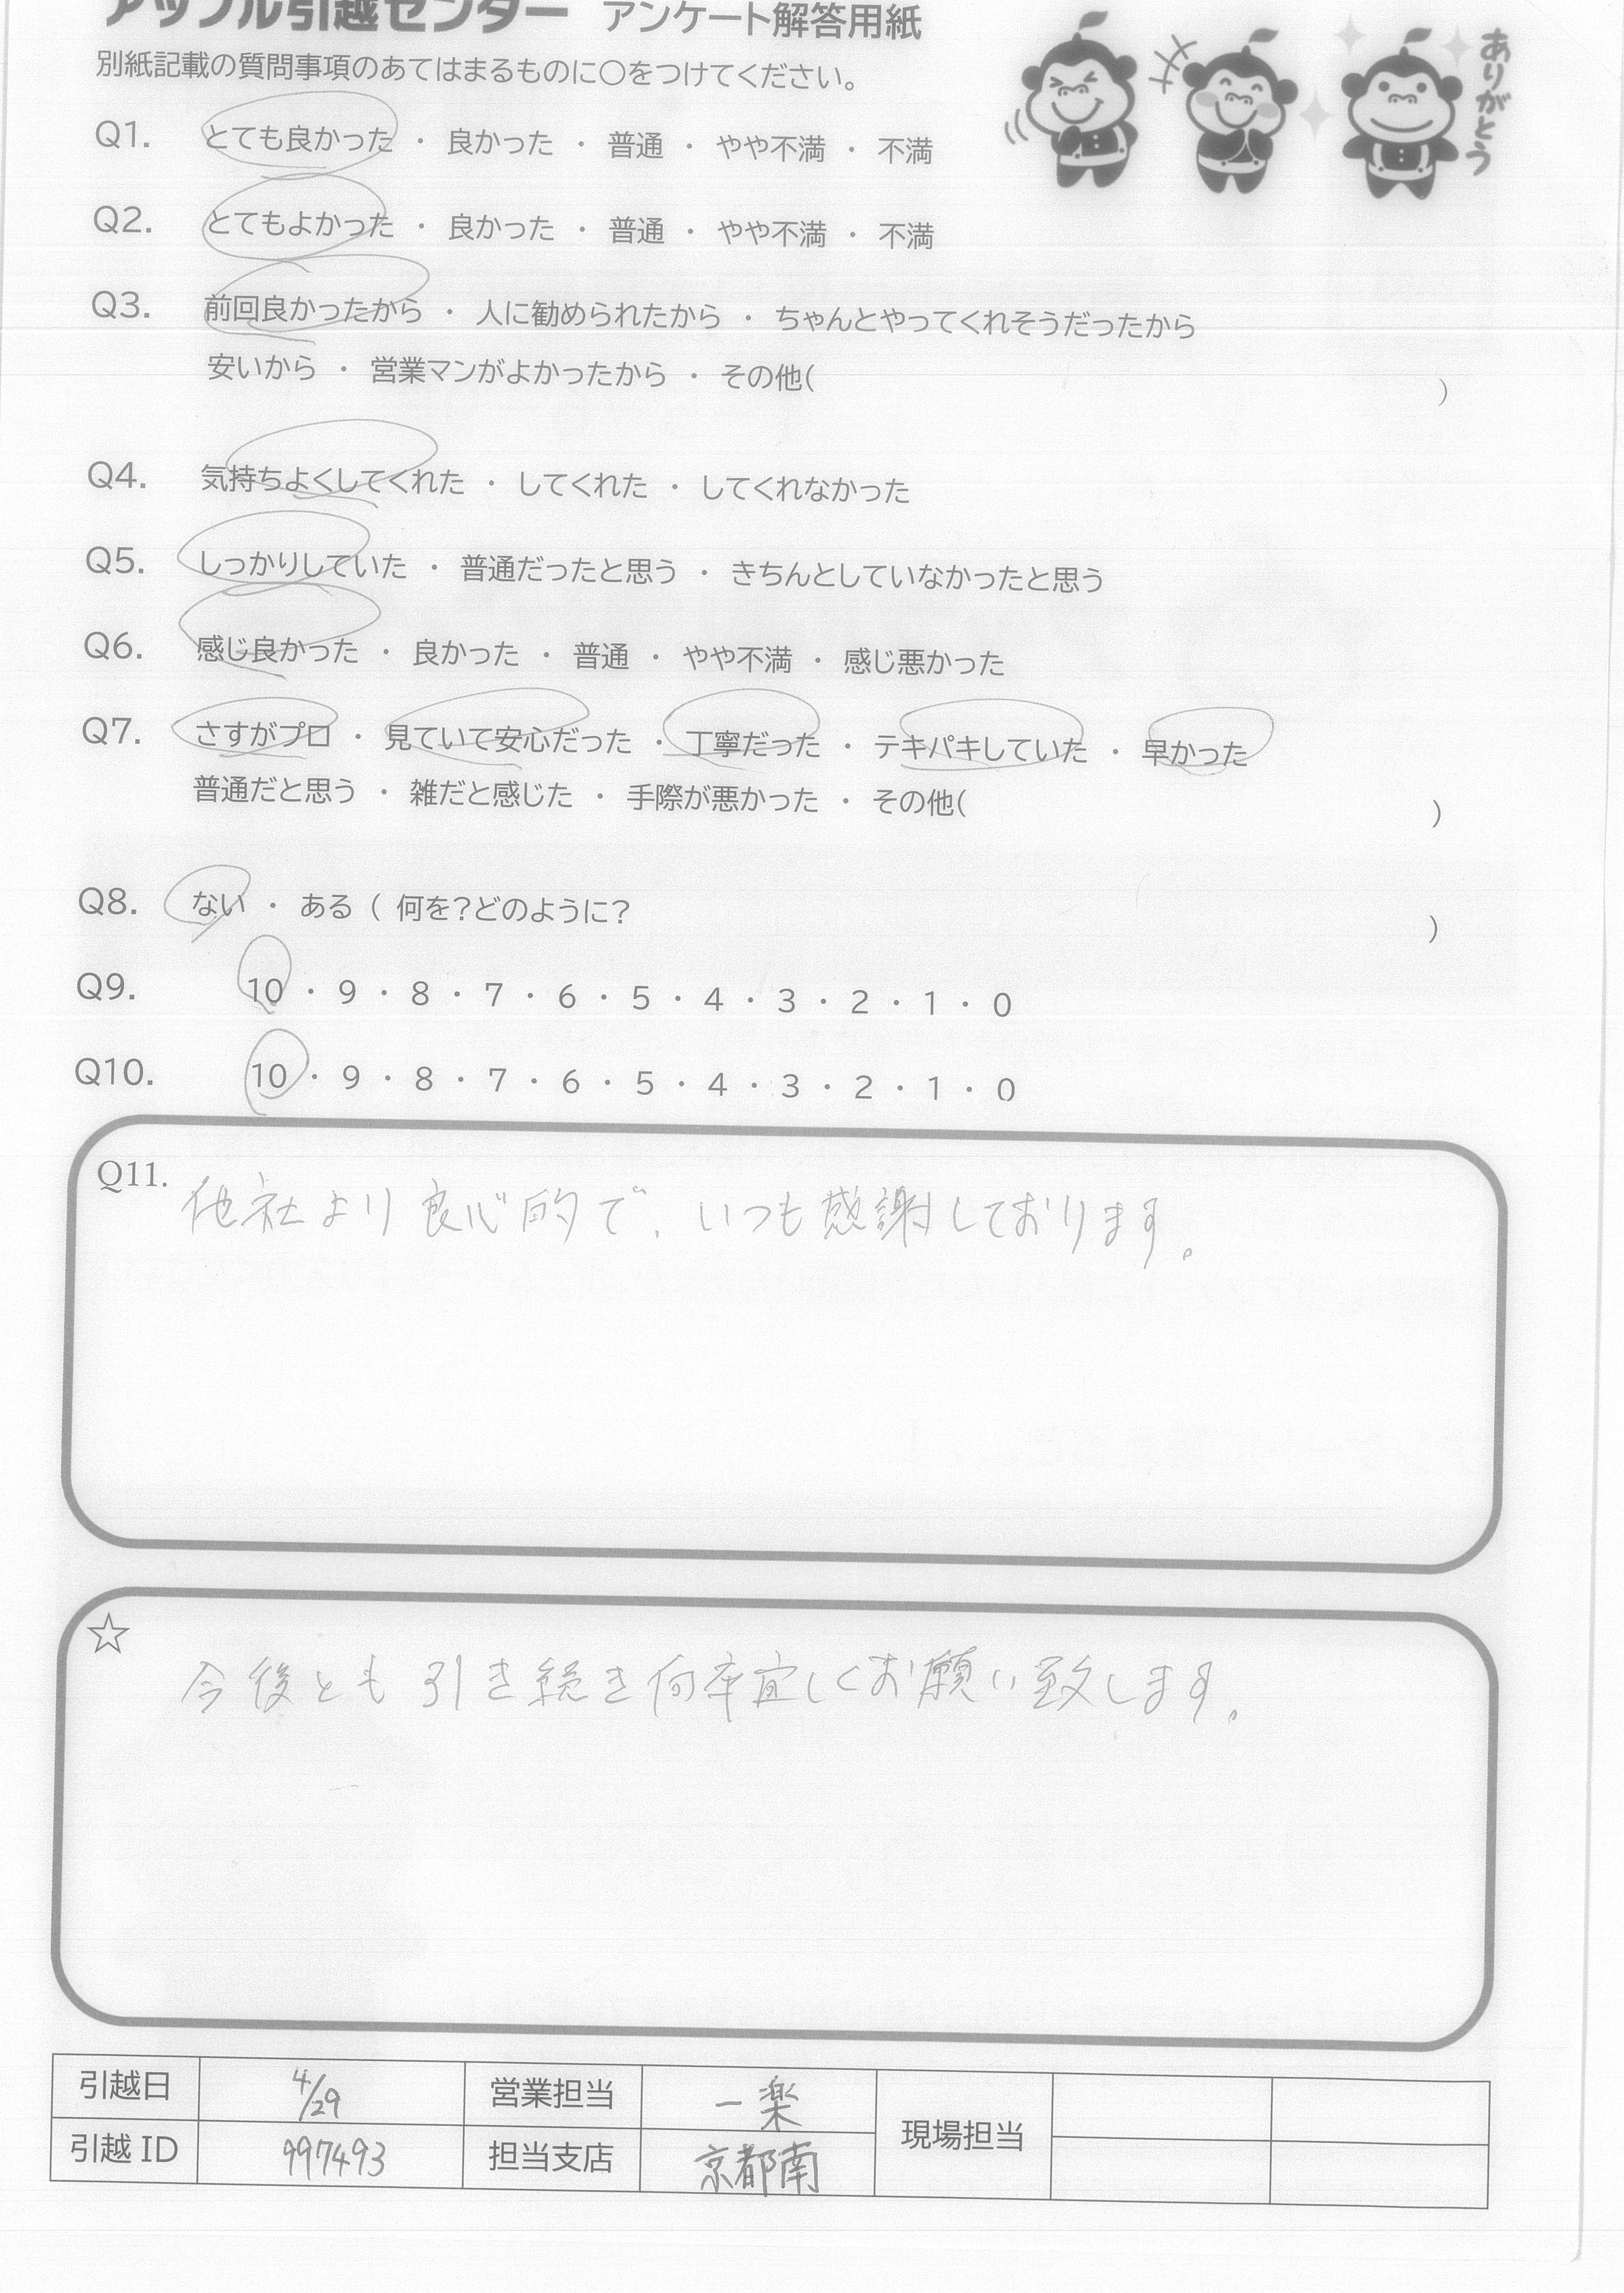 アップル引越センター アンケート解答用紙
別紙記載の質問事項のあてはまるものに〇をつけてください。
ありがとう
Q1. とても良かった ・ 良かった ・ 普通 ・ やや不満 ・ 不満
Q2. とてもよかった ・ 良かった ・ 普通 ・ やや不満 ・ 不満
Q3. 前回良かったから ・ 人に勧められたから ・ ちゃんとやってくれそうだったから
安いから ・ 営業マンがよかったから ・ その他( )
Q4. 気持ちよくしてくれた ・ してくれた ・ してくれなかった
Q5. しっかりしていた ・ 普通だったと思う ・ きちんとしていなかったと思う
Q6. 感じ良かった ・ 良かった ・ 普通 ・ やや不満 ・ 感じ悪かった
Q7. さすがプロ ・ 見ていて安心だった ・ 丁寧だった ・ テキパキしていた ・ 早かった
普通だと思う ・ 雑だと感じた ・ 手際が悪かった ・ その他( )
Q8. ない ・ ある ( 何を?どのように? )
Q9. 10 ・ 9 ・ 8 ・ 7 ・ 6 ・ 5 ・ 4 ・ 3 ・ 2 ・ 1 ・ 0
Q10. 10 ・ 9 ・ 8 ・ 7 ・ 6 ・ 5 ・ 4 ・ 3 ・ 2 ・ 1 ・ 0
Q11. 他社より良心的で、いつも感謝しております。
☆ 今後とも引き続き何卒宜しくお願い致します。
引越日 4/29 営業担当 一楽 現場担当
引越 ID 997493 担当支店 京都南